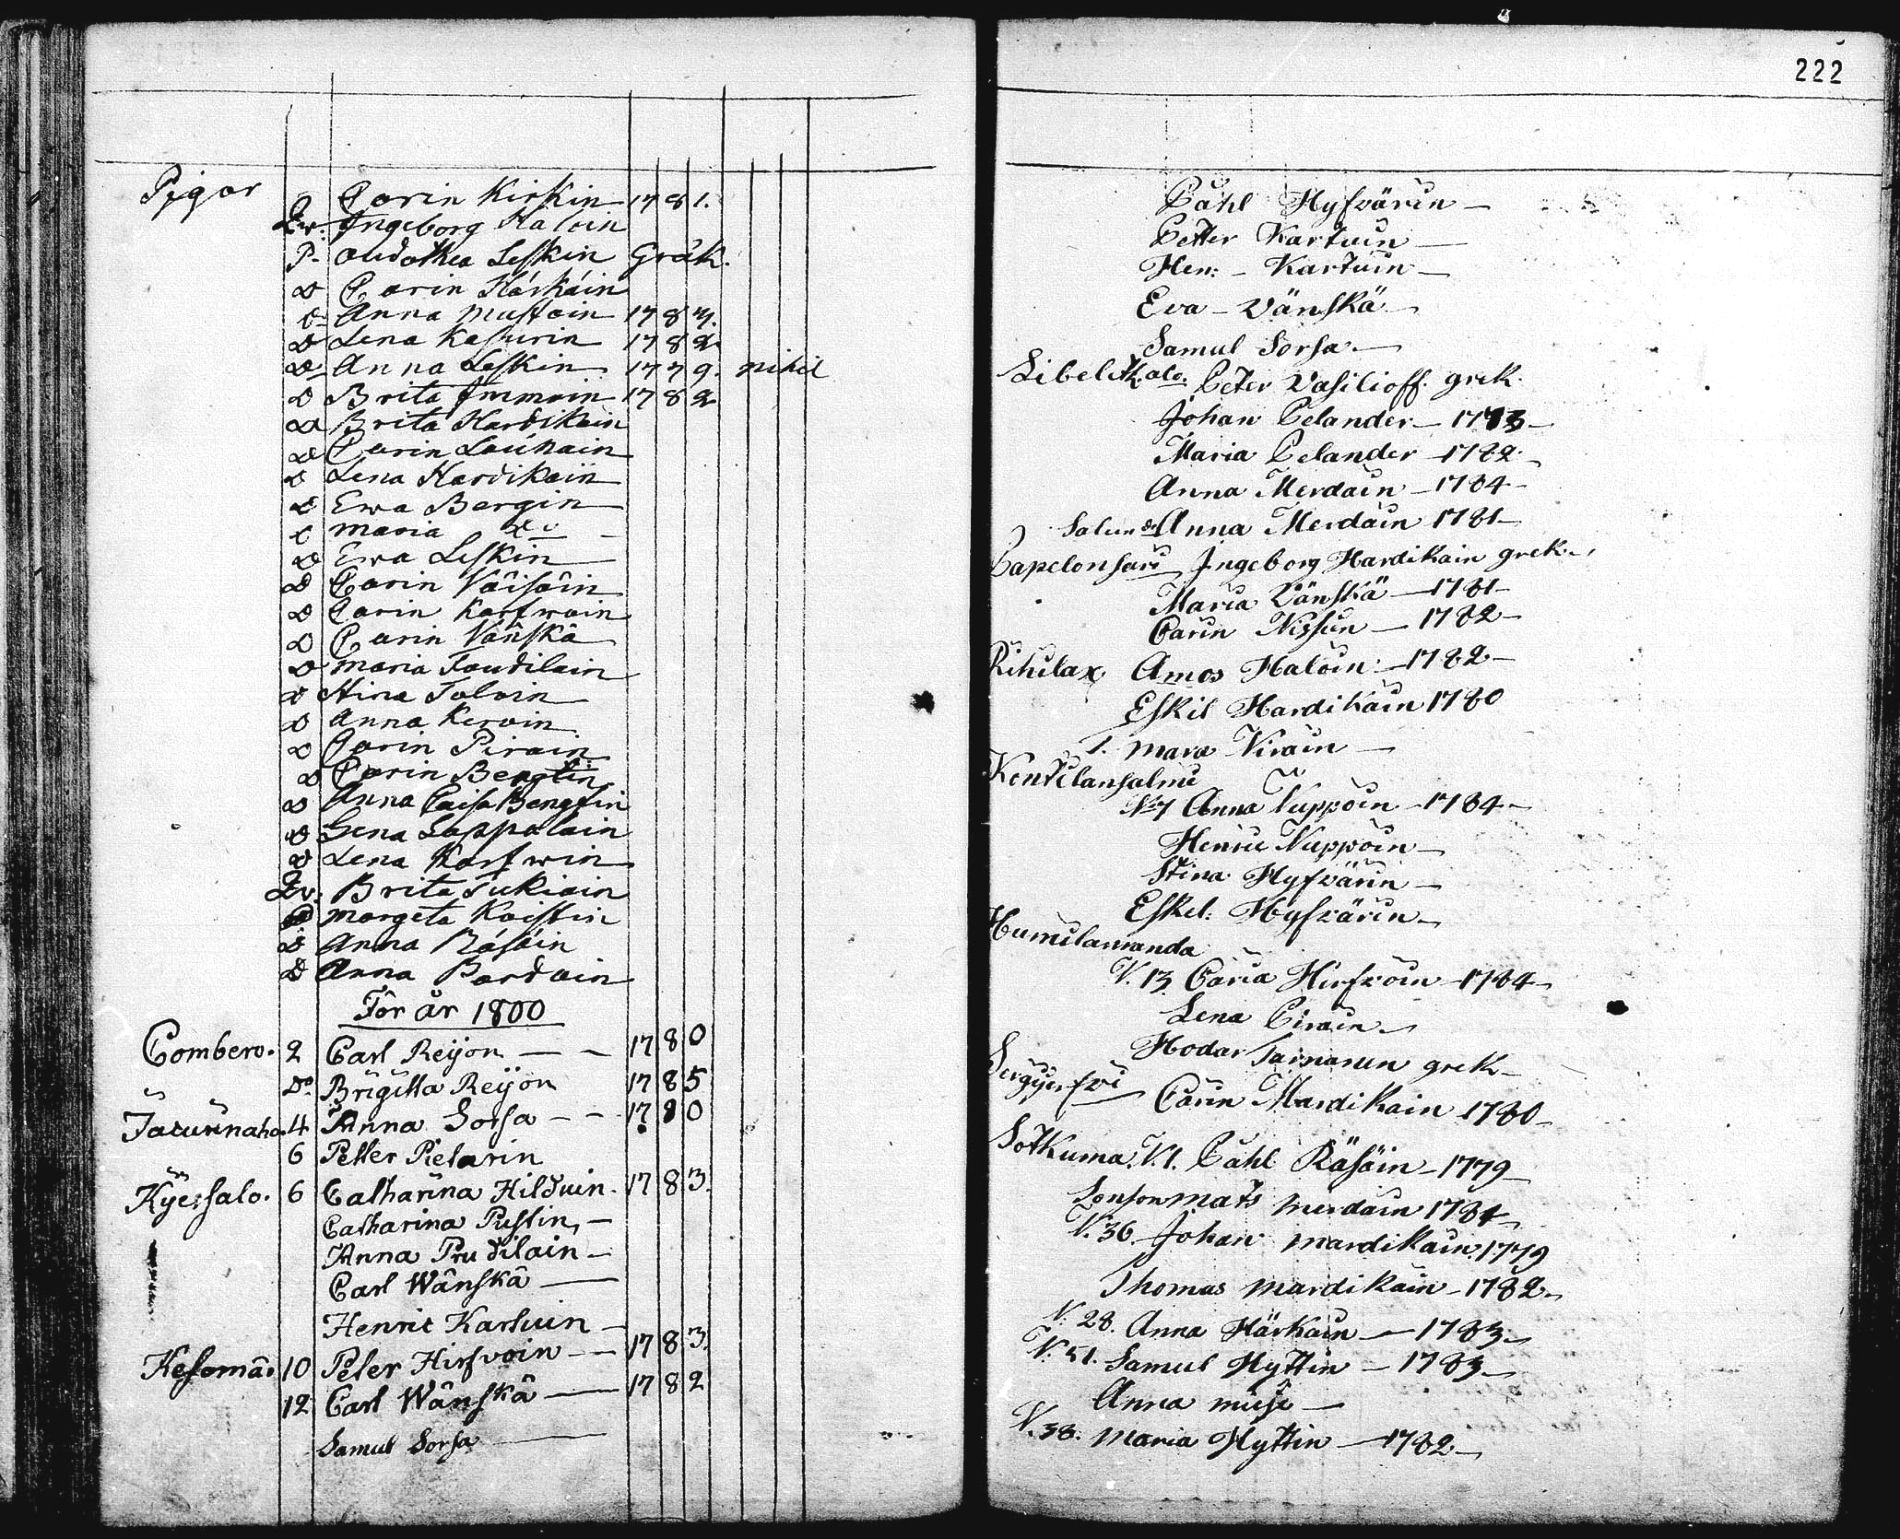 Pigor
D Carin Kirkin 1781.
Dr. Ingeborg Haloin
P. Oudothea Leskin Gräk.
D Carin Härkäin
D Anna Mustoin 1784.
D Lena Kasurin 1782
D Anna Leskin 1779. nihil
D Brita Immoin 1782
D Brita Hardikain
D Carin Louhain
D Lena Hardikain
D Ewa Bergin
D Maria D:o
D Ewa Leskin
D Carin Väisäin
D Carin Karfwain
D Carin Vänskä
D Maria Taudilain
D Stina Tolvin
D Anna Kervin
D Carin Pirain
D Carin Bengtin
D Anna Caisa Bengtin
D Lena Lappalain
D Lena Karfwin
Dr. Brita Tukiain
D Margeta Koistin
D Anna Räsäin
D Anna Pardain
För år 1800
Combero. 2 Carl Reijon — — 1780
Do Brigitta Reijon 1785
Jarunnaho. 4 Anna Sorsa — — 1780
6 Petter Pietarin
Kyersalo. 6 Catharina Hilduin. 1783.
Catharina Pustin, —
Anna Prudilain —
Carl Wänskä —
Henric Kartuin —
Kesomä. 10 Peter Hirfvoin — — 1783.
12 Carl Wänskä — 1782
Samul Sorsa —
222
Påhl Hyfvärin —
Petter Kartuin —
Hen: — Kartuin —
Eva — Vänskä —
Samul Sorsa —
Libeleth.alo: Peter Vasilioff. grek.
Johan Pelander — 1773 —
Maria Pelander — 1782 —
Anna Merdäin — 1784 —
Anna Merdäin 1781 —
Papelonsari Ingeborg Hardikain grek —
Maria Vänskä — 1781 —
Carin Nissin — 1782 —
Rihilax Amos Haloin — 1782 —
Eskil Hardikain 1780
1. Mara Virain —
Kentilansalmi
No 7 Anna Nuppoin — 1784 —
Henric Nuppoin —
Stina Hyfvärin —
Eskel: Hyfvärin —
Humilamranda
N. 13 Caria Hirfvoin — 1784 —
Lena Pirain —
Hodar Tarnanen grek —
Sergijerfvi Carin Mardikain 1780 —
Sotkuma. N. 1. Påhl Räsäin — 1779 —
Sonson Mats Merdain 1784 —
N. 36. Johan Mardikain 1779
Thomas Mardikain — 1782 —
N. 28. Anna Härkäin — 1783 —
N. 51. Samul Hyttin — 1783 —
Anna —
N. 38. Maria Hyttin — 1782 —